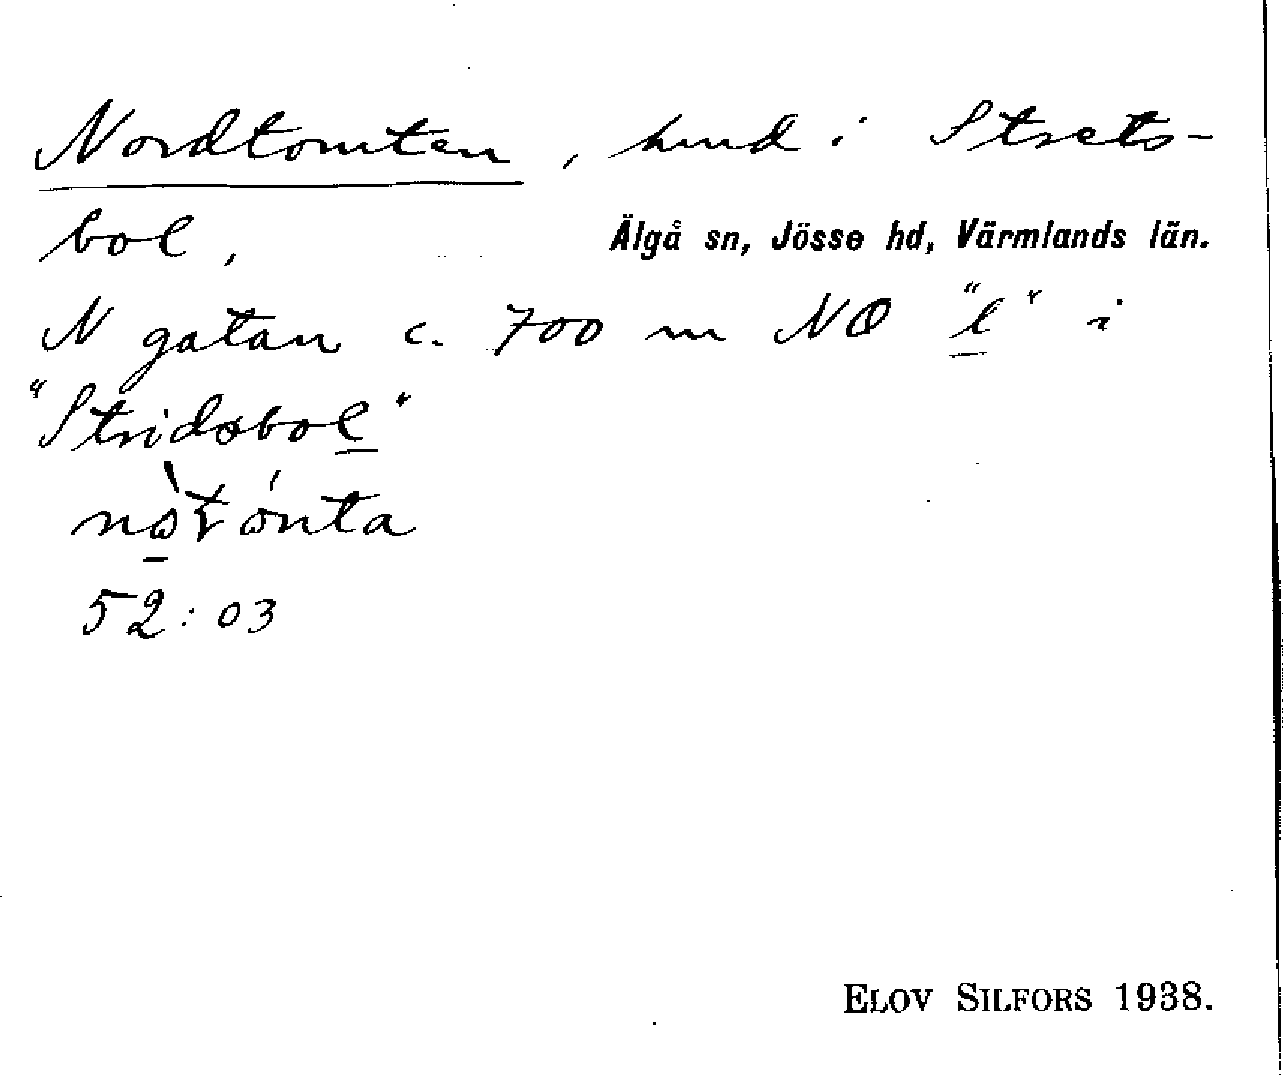 Nordtomten, hmd i Strets-
bol, Älgå sn, Jösse hd, Värmlands län.
N gatan c. 700 m NO "l" i
"Stridsbol"
52:03
ELOV SILFORS 1938.